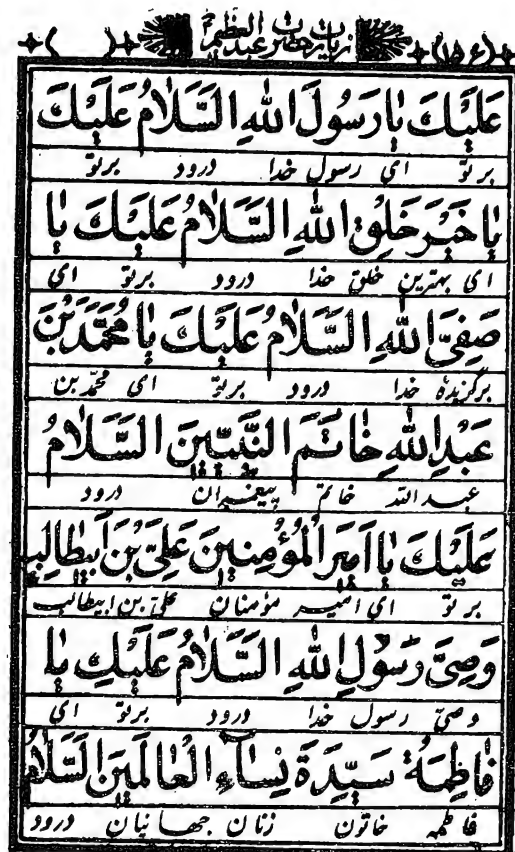 (۱۵۶) زیارت حضرت عبدالعظیم ( )
عَلَیْكَ یٰا رَسُولَ اللهِ السَّلٰامُ عَلَیْكَ
بر تو ای رسول خدا درود بر تو
یٰا خَیْرَ خَلْقِ اللهِ السَّلٰامُ عَلَیْكَ یٰا
ای بهترین خلق خدا درود بر تو ای
صَفِیَّ اللهِ السَّلٰامُ عَلَیْكَ یٰا مُحَمَّدَ بْنَ
برگزیدهٔ خدا درود بر تو ای محمّد بن
عَبْدِ اللهِ خٰاتَمَ النَّبِیّینَ السَّلٰامُ
عبد الله خاتم پیغمبران درود
عَلَیْكَ یٰا اَمیرَ الْمُؤْمِنینَ عَلِیَّ بْنَ اَبیطٰالِبٍ
بر تو ای امیر مؤمنان علیّ بن ابیطالب
وَصِیَّ رَسُولِ اللهِ السَّلٰامُ عَلَیْكِ یٰا
وصیّ رسول خدا درود بر تو ای
فٰاطِمَةُ سَیِّدَةَ نِسٰاءِ الْعٰالَمینَ السَّلٰامُ
فاطمه خاتون زنان جهانیان درود